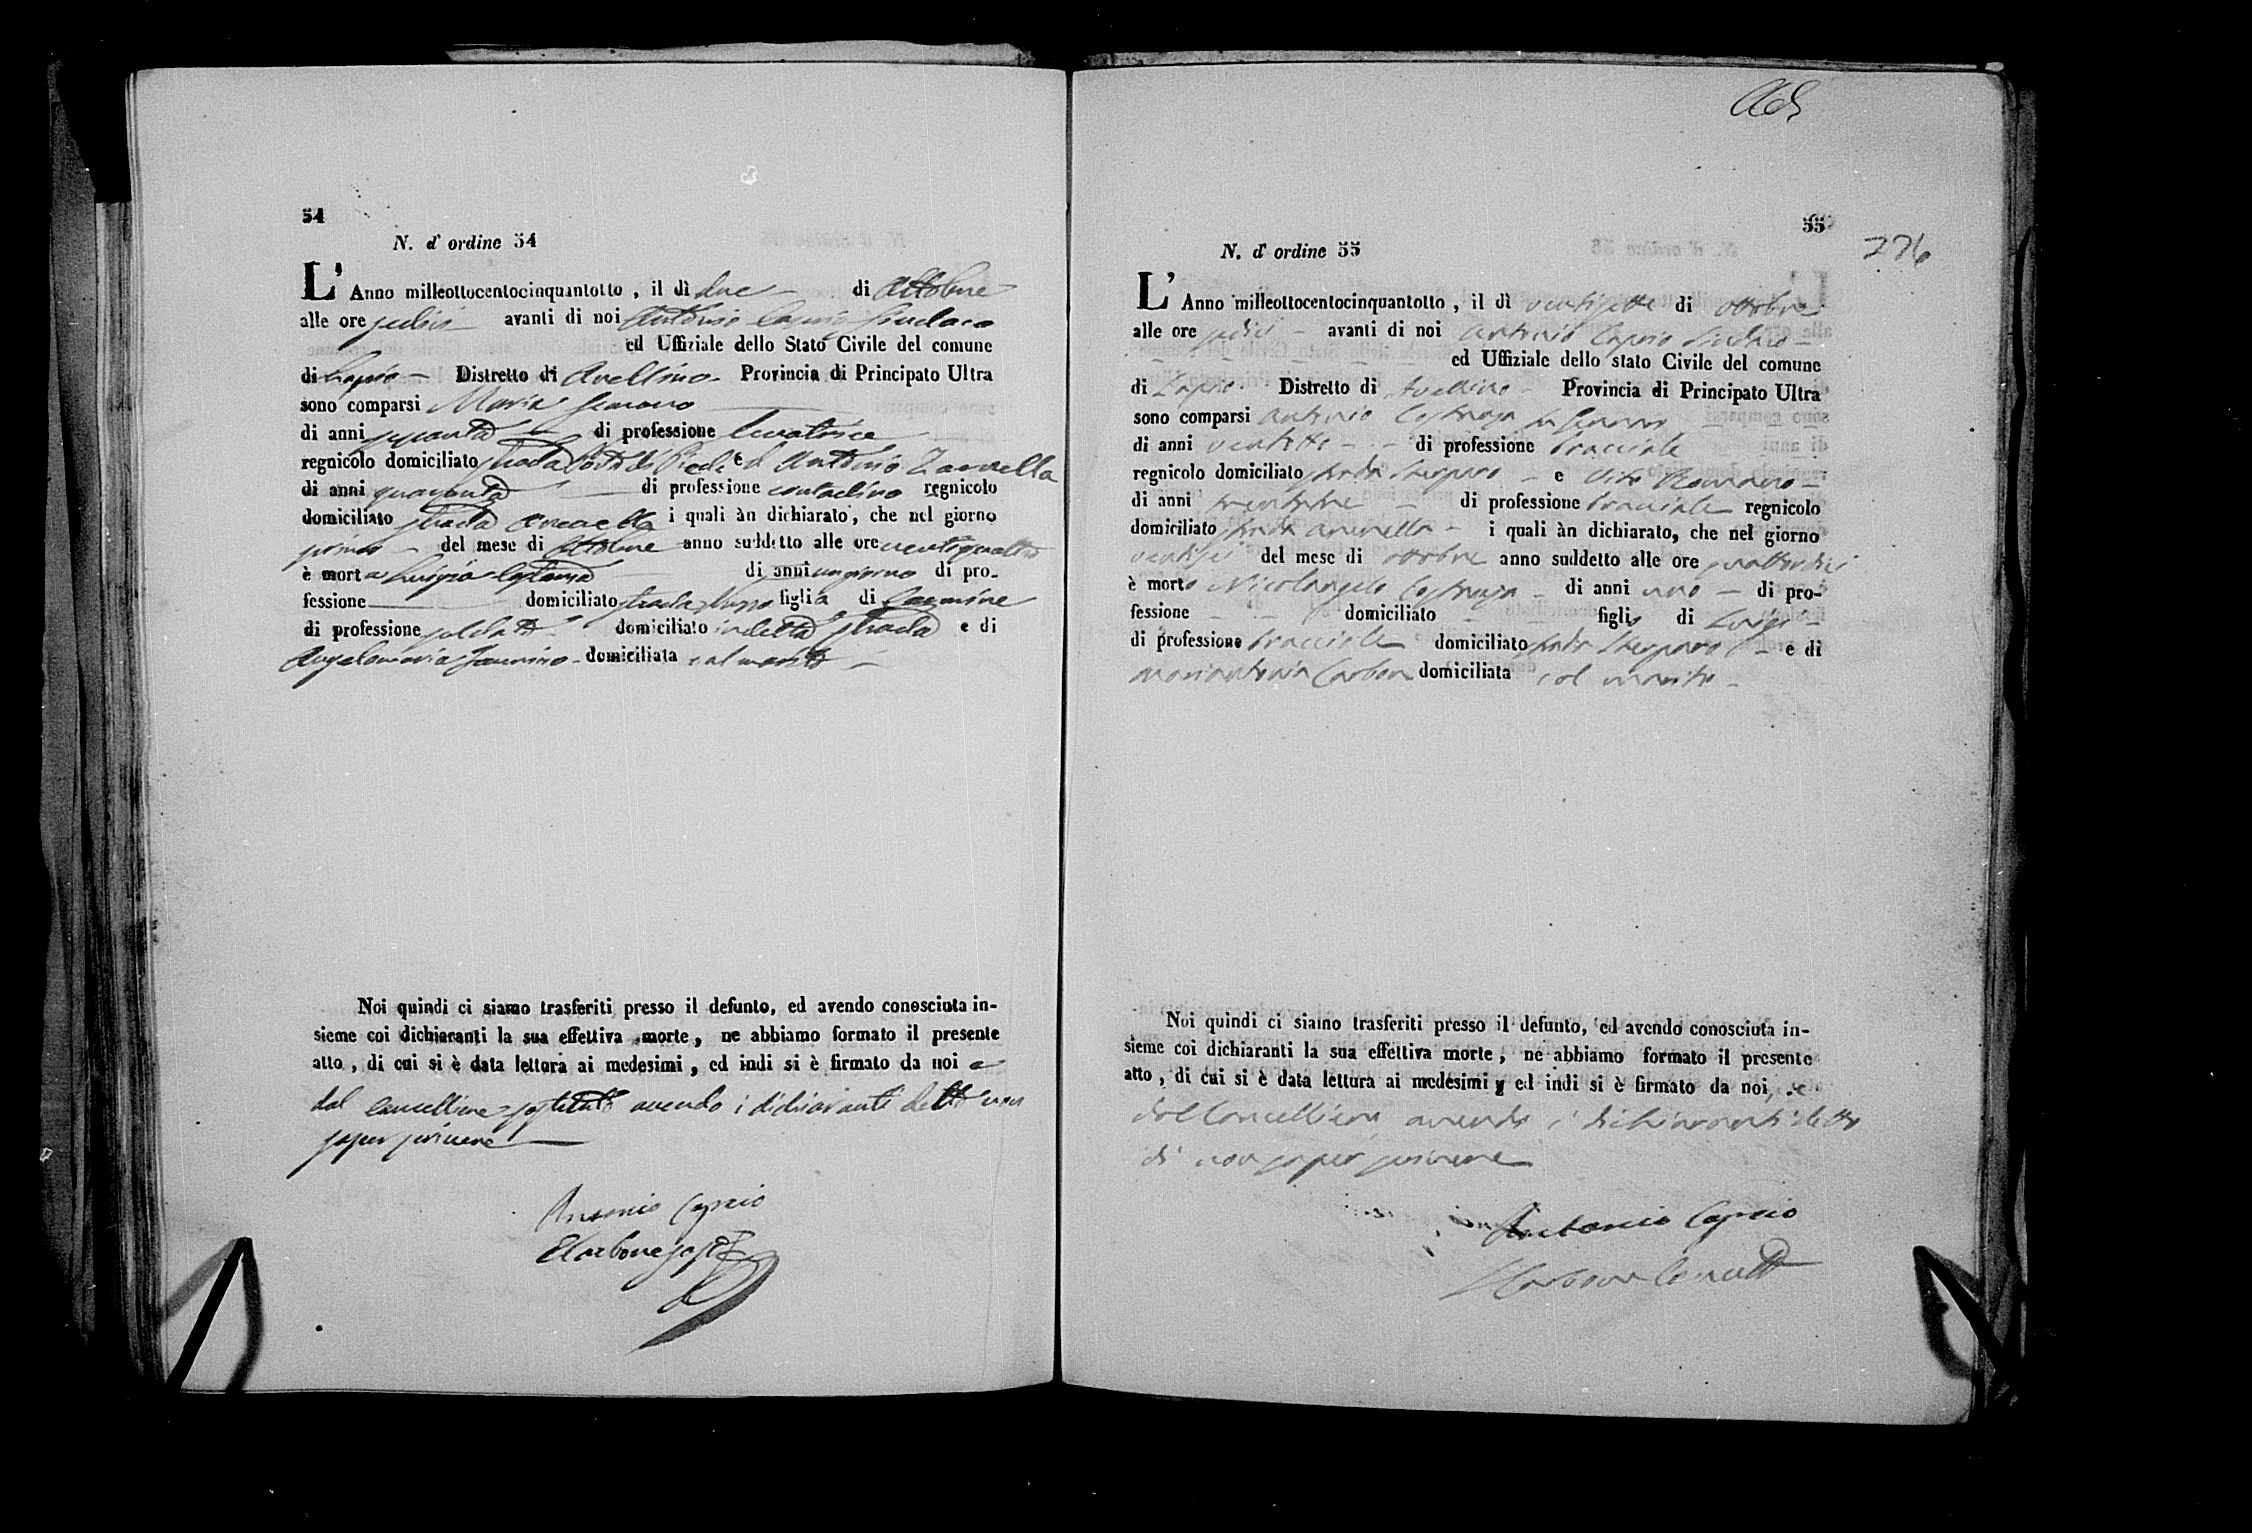 54
N. d' ordine 54
L' Anno milleottocentocinquantotto , il dì due di Ottobre
alle ore sedici avanti di noi Antonio Caprio Sindaco
ed Uffiziale dello Stato Civile del comune
di Lapio Distretto di Avellino Provincia di Principato Ultra
sono comparsi Maria
di anni di professione levatrice
regnicolo domiciliato strada e Antonio Zarrella
di anni quaranta di professione contadino regnicolo
domiciliato strada i quali àn dichiarato, che nel giorno
primo del mese di Ottobre anno suddetto alle ore ventiquattro
è morta Luigia di anni un giorno di pro-
fessione domiciliato strada figlia di Carmine
di professione soldato domiciliato in detta strada e di
Angelamaria domiciliata col marito
Noi quindi ci siamo trasferiti presso il defunto, ed avendo conosciuta in-
sieme coi dichiaranti la sua effettiva morte, ne abbiamo formato il presente
atto, di cui si è data lettura ai medesimi, ed indi si è firmato da noi e
dal cancelliere sostituto avendo i dichiaranti detto non
saper scrivere
Antonio Caprio
Carbone sost
55
276
N. d' ordine 55
L' Anno milleottocentocinquantotto , il dì ventisette di ottobre
alle ore sedici avanti di noi Antonio Caprio Sindaco
ed Uffiziale dello stato Civile del comune
di Lapio Distretto di Avellino Provincia di Principato Ultra
sono comparsi Antonio
di anni di professione bracciale
regnicolo domiciliato strada e Vito Romano
di anni di professione bracciale regnicolo
domiciliato strada i quali àn dichiarato, che nel giorno
ventisei del mese di ottobre anno suddetto alle ore quattordici
è morto Nicolangelo di anni uno di pro-
fessione domiciliato figlio di Luigi
di professione bracciale domiciliato strada e di
Mariantonia Carbone domiciliata col marito
Noi quindi ci siamo trasferiti presso il defunto, ed avendo conosciuta in-
sieme coi dichiaranti la sua effettiva morte, ne abbiamo formato il presente
atto, di cui si è data lettura ai medesimi, ed indi si è firmato da noi, e
dal Cancelliere avendo i dichiaranti detto
di non saper scrivere
Antonio Caprio
Carbone